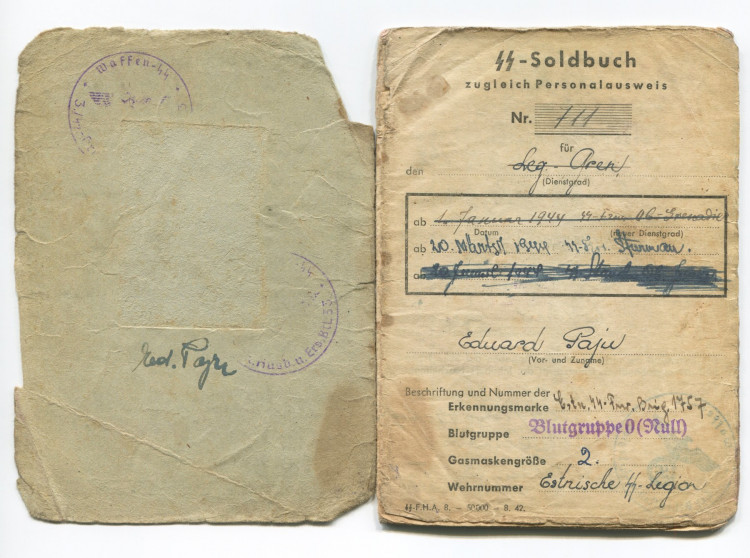 Waffen-SS
Ausb. u. Ers. Btl.
SS-Soldbuch
zugleich Personalausweis
Nr. 111
für
den Leg-Gren.
(Dienstgrad)
ab 1. Januar 1944 SS-Frw. Ob-Grenadier
Datum (neuer Dienstgrad)
ab 20. 1944 SS- Sturmm.
ab
Eduard Paju
(Vor- und Zuname)
Beschriftung und Nummer der
Erkennungsmarke Estn. SS-Frw. Brig. 1757
Blutgruppe Blutgruppe 0 (Null)
Gasmaskengröße 2.
Wehrnummer Estnische SS-Legion
SS-F.H.A. 8. — 50000 — 8. 42.